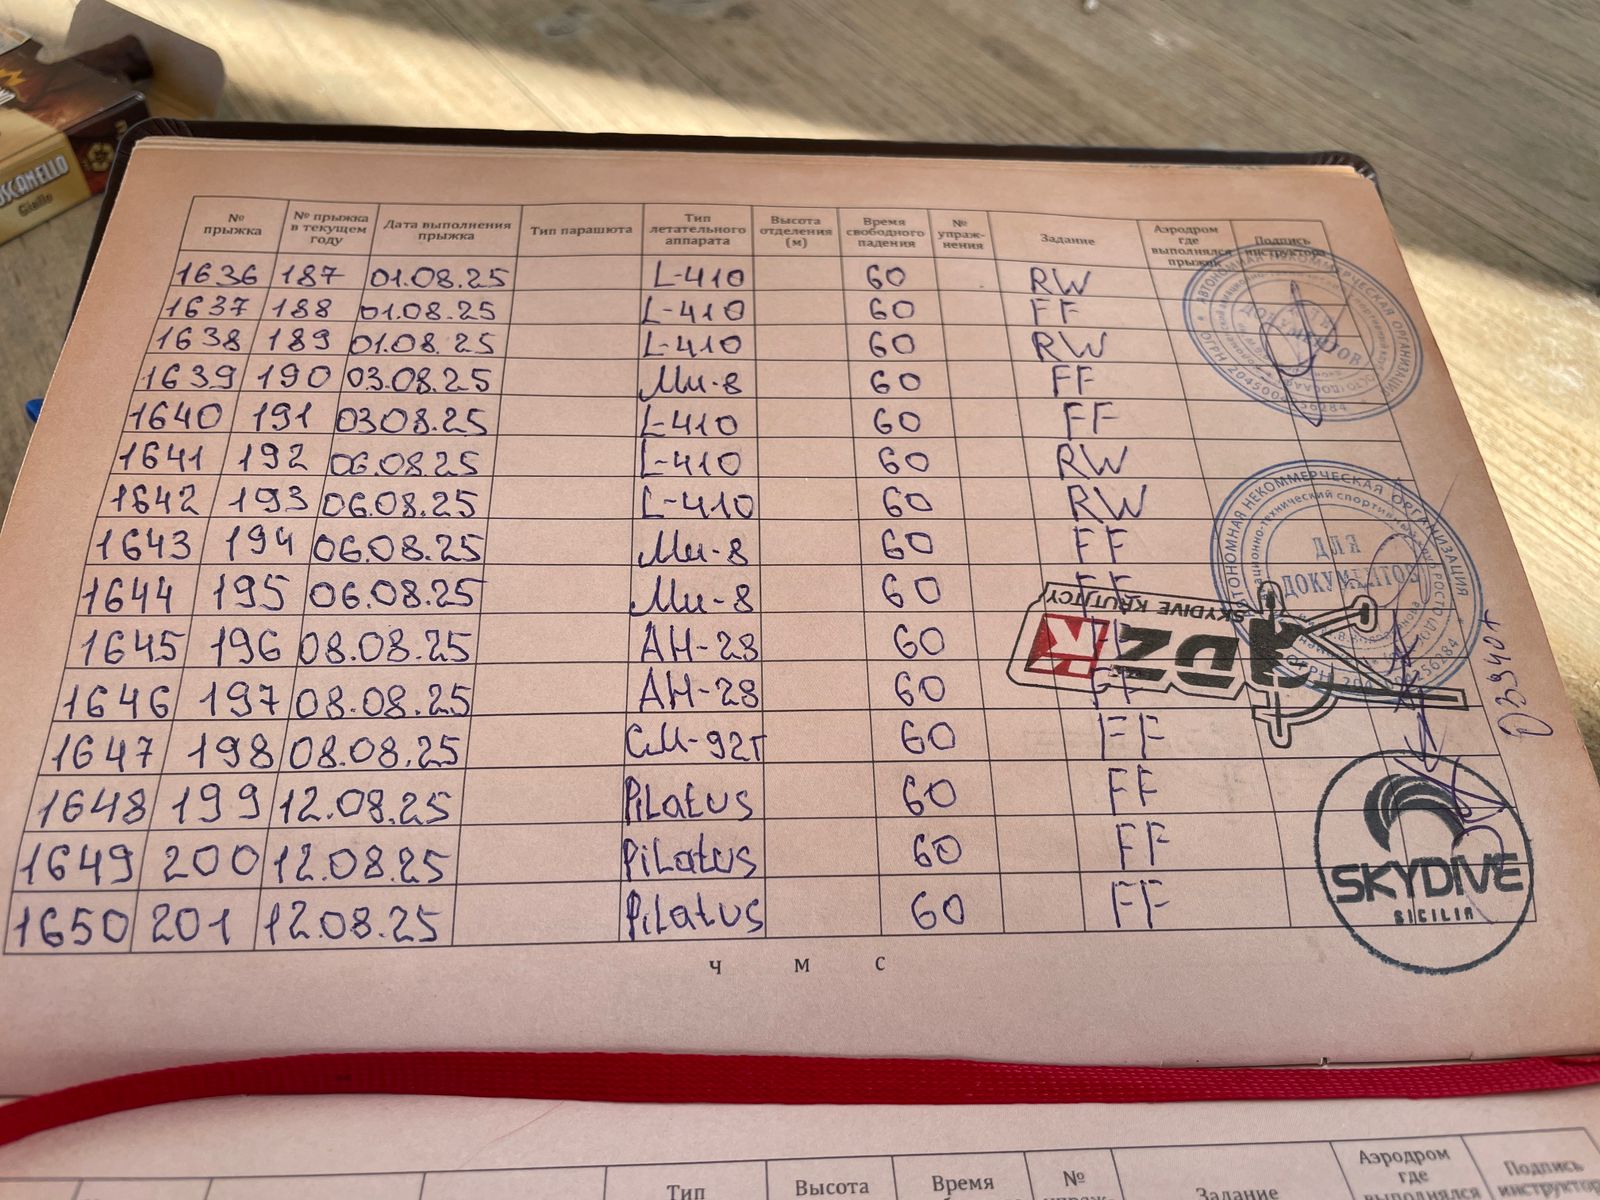 TOSCANELLO
Giallo
№ прыжка | № прыжка в текущем году | Дата выполнения прыжка | Тип парашюта | Тип летательного аппарата | Высота отделения (м) | Время свободного падения | № упраж-нения | Задание | Аэродром где выполнялся прыжок | Подпись инструктора
1636 187 01.08.25 L-410 60 RW
1637 188 01.08.25 L-410 60 FF
1638 189 01.08.25 L-410 60 RW
1639 190 03.08.25 Ми-8 60 FF
1640 191 03.08.25 L-410 60 FF
1641 192 06.08.25 L-410 60 RW
1642 193 06.08.25 L-410 60 RW
1643 194 06.08.25 Ми-8 60 FF
1644 195 06.08.25 Ми-8 60 FF
1645 196 08.08.25 АН-28 60 FF
1646 197 08.08.25 АН-28 60 FF
1647 198 08.08.25 СМ-92Т 60 FF
1648 199 12.08.25 Pilatus 60 FF
1649 200 12.08.25 Pilatus 60 FF
1650 201 12.08.25 Pilatus 60 FF
АВТОНОМНАЯ НЕКОММЕРЧЕСКАЯ ОРГАНИЗАЦИЯ
ДЛЯ
ДОКУМЕНТОВ
АВТОНОМНАЯ НЕКОММЕРЧЕСКАЯ ОРГАНИЗАЦИЯ
ДЛЯ
ДОКУМЕНТОВ
SKYDIVE KRUTICY
DZK
SKYDIVE
SICILIA
ч м с
Тип
Высота
Время
№
Задание
Аэродром
где
выполнялся
Подпись
инструктора